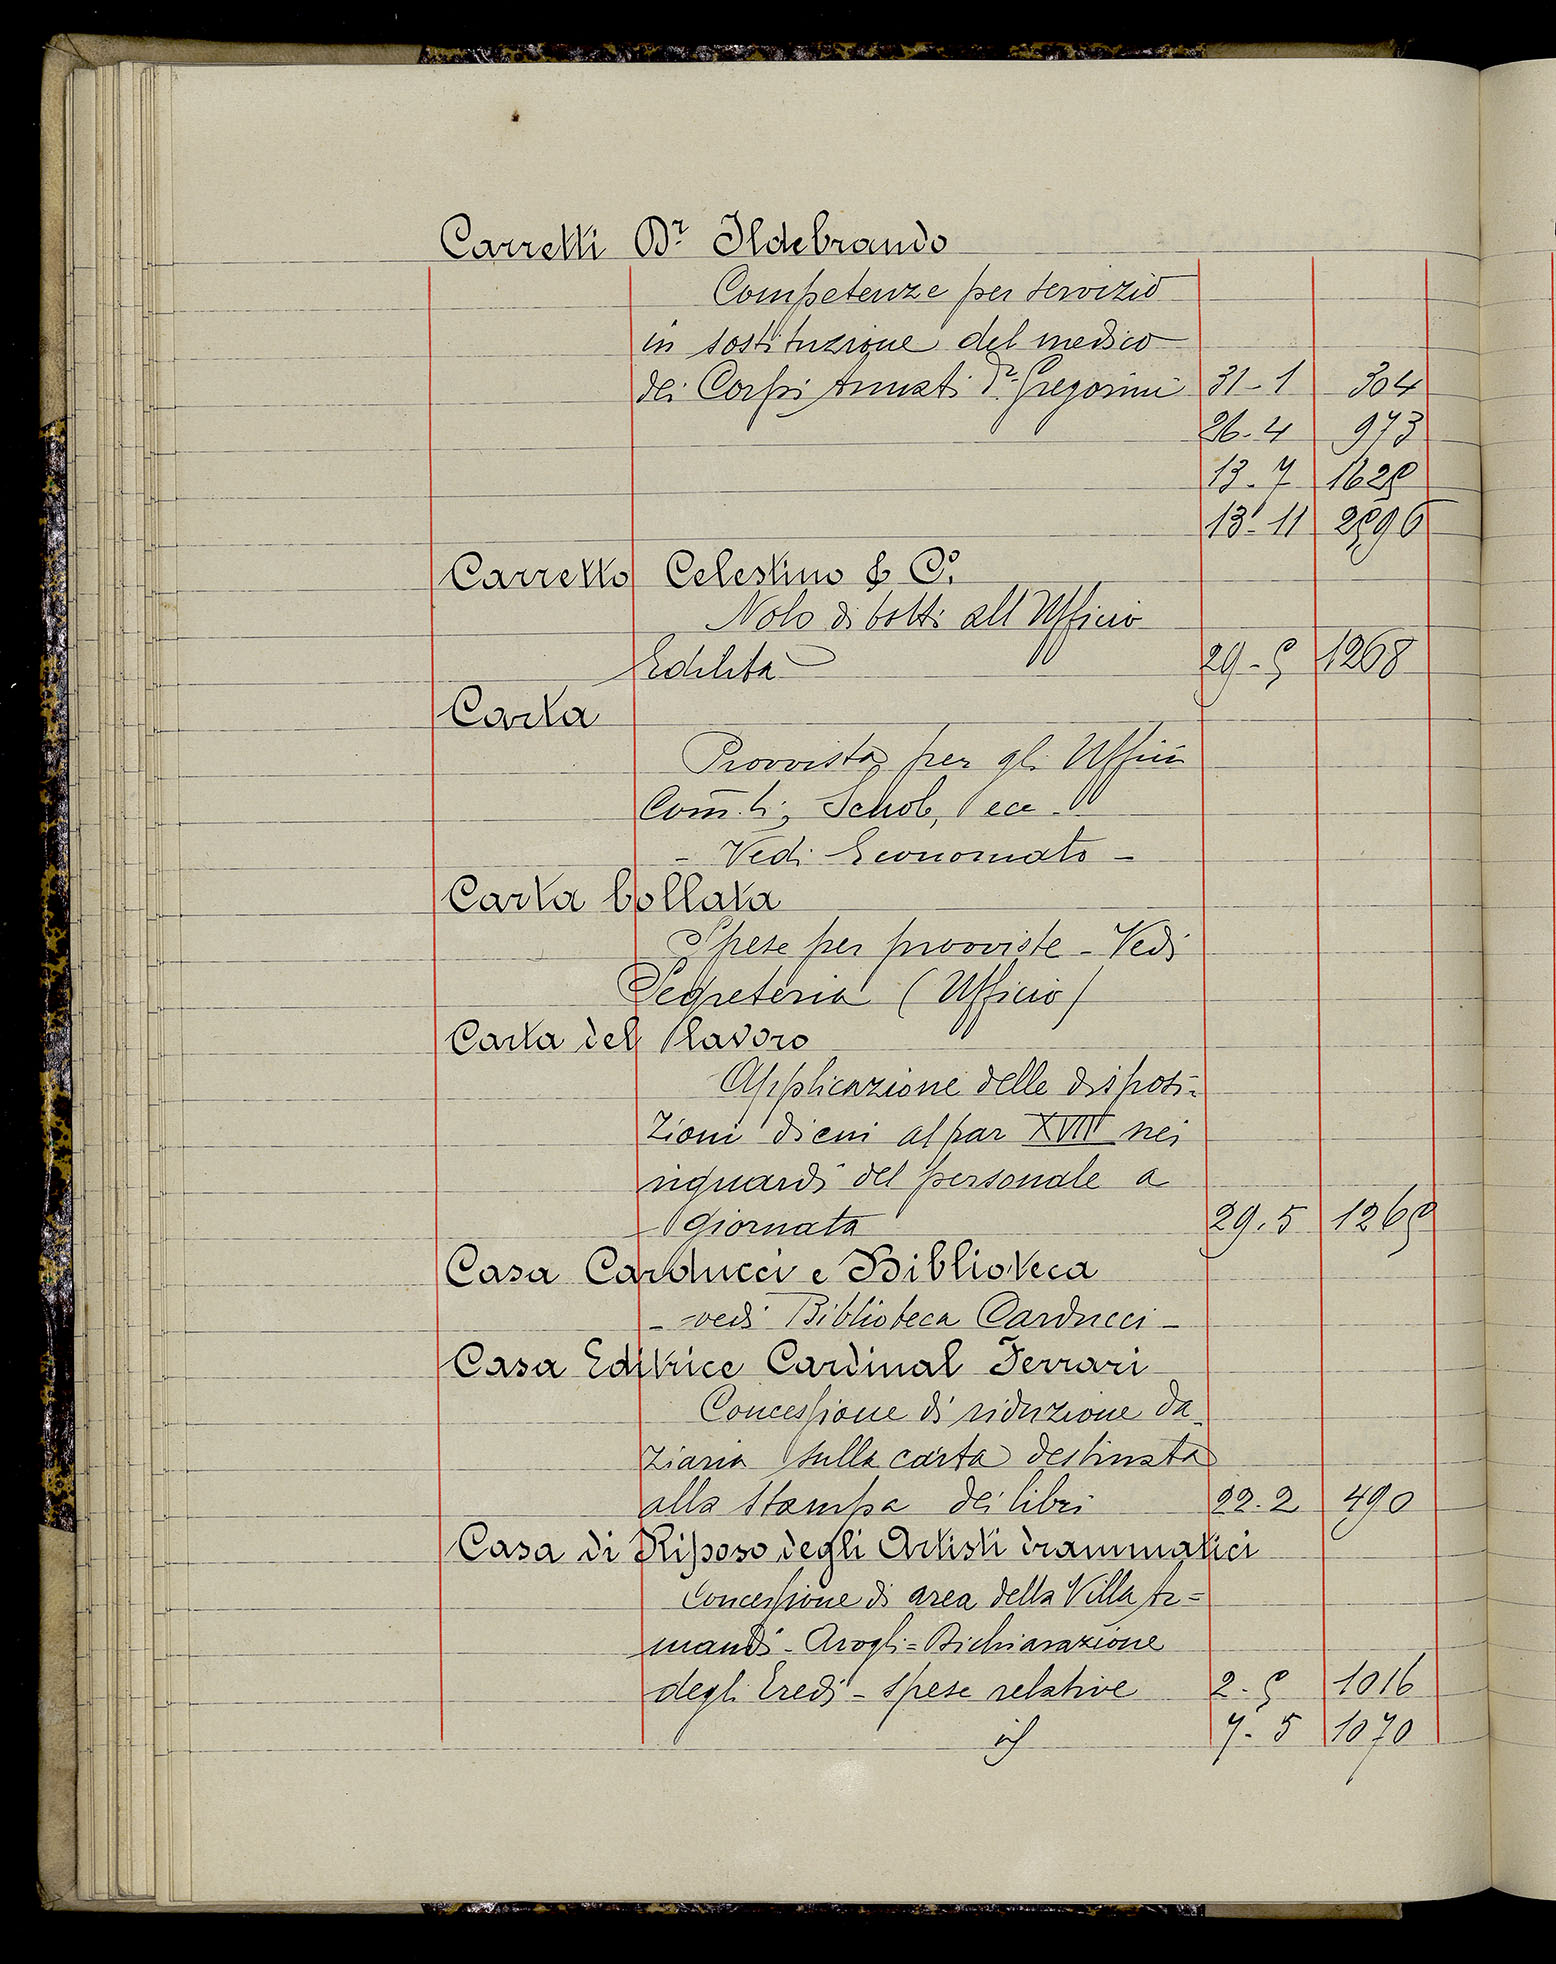 Carretti Dr Ildebrando
Competenze per servizio
in sostituzione del medico
dei Corpi Armati Dr. Gregorini 31-1 304
26-4 973
13-7 1625
13-11 2596
Carretto Celestino & C.
Nolo di botti all'Ufficio
Edilità 29-5 1268
Carta
Provvista per gli Uffici
Com.li, Scuole, ecc.
- Vedi Economato -
Carta bollata
Spese per provviste - Vedi
Segreteria (Ufficio)
Carta del lavoro
Applicazione delle disposi-
zioni di cui al par XVIII nei
riguardi del personale a
giornata 29.5 1265
Casa Carducci e Biblioteca
- vedi Biblioteca Carducci -
Casa Editrice Cardinal Ferrari
Concessione di riduzione da-
ziaria sulla carta destinata
alla stampa dei libri 22.2 490
Casa di Riposo degli Artisti drammatici
Concessione di area della Villa Ar=
mandi-Avogli = Dichiarazione
degli Eredi - spese relative 2-5 1016
id 7-5 1070